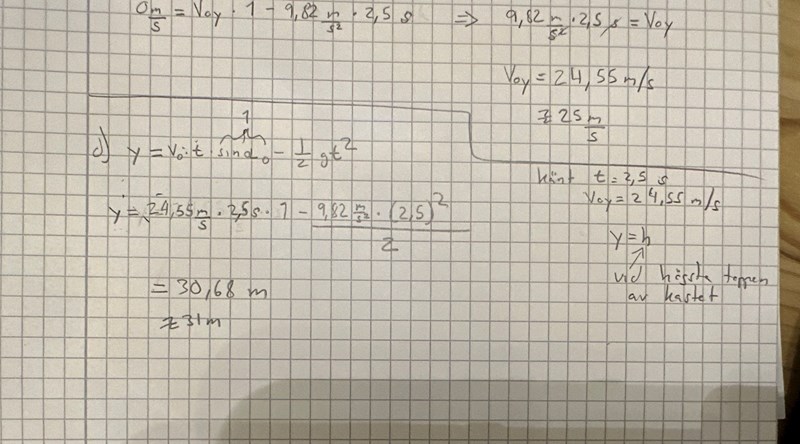 0 m/s = Voy · 1 - 9,82 m/s² · 2,5 s ⇒ 9,82 m/s² · 2,5 s = Voy
Voy = 24,55 m/s
≈ 25 m/s
1
d) y = V₀ · t · sinα₀ - 1/2 gt²
känt t = 2,5 s
Voy = 24,55 m/s
y = 24,55 m/s · 2,5 s · 1 - 9,82 m/s² · (2,5)² / 2
y = h
vid högsta toppen
av kastet
= 30,68 m
≈ 31 m